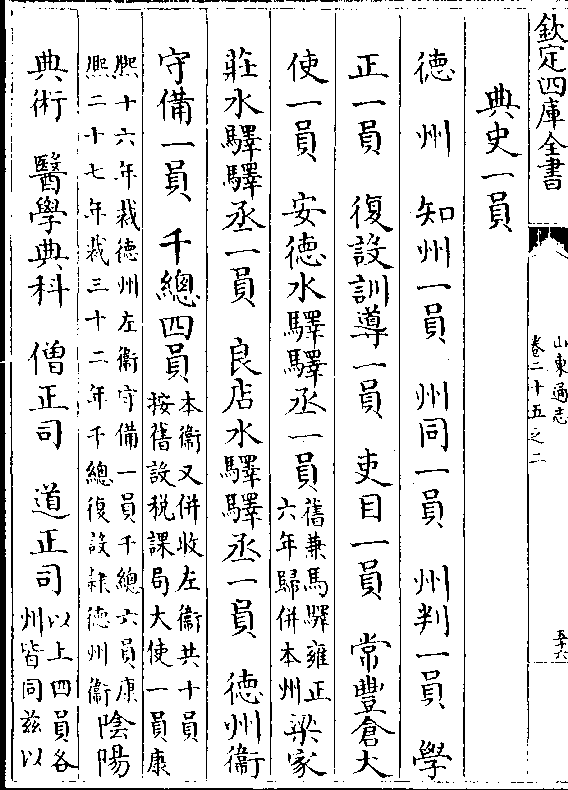 欽定四庫全書
山東通志
卷二十五之二
五十六
典史一員
德州 知州一員 州同一員 州判一員 學
正一員 復設訓導一員 吏目一員 常豐倉大
使一員 安德水驛驛丞一員 舊兼馬驛雍正
六年歸併本州 梁家
莊水驛驛丞一員 良店水驛驛丞一員 德州衞
守備一員 千總四員 本衞又併收左衞共十員
按舊設税課局大使一員康
熙十六年裁德州左衞守備一員千總六員康
熙二十七年裁三十二年千總復設隷德州衞 陰陽
典術 醫學典科 僧正司 道正司 以上四員各
州皆同兹以